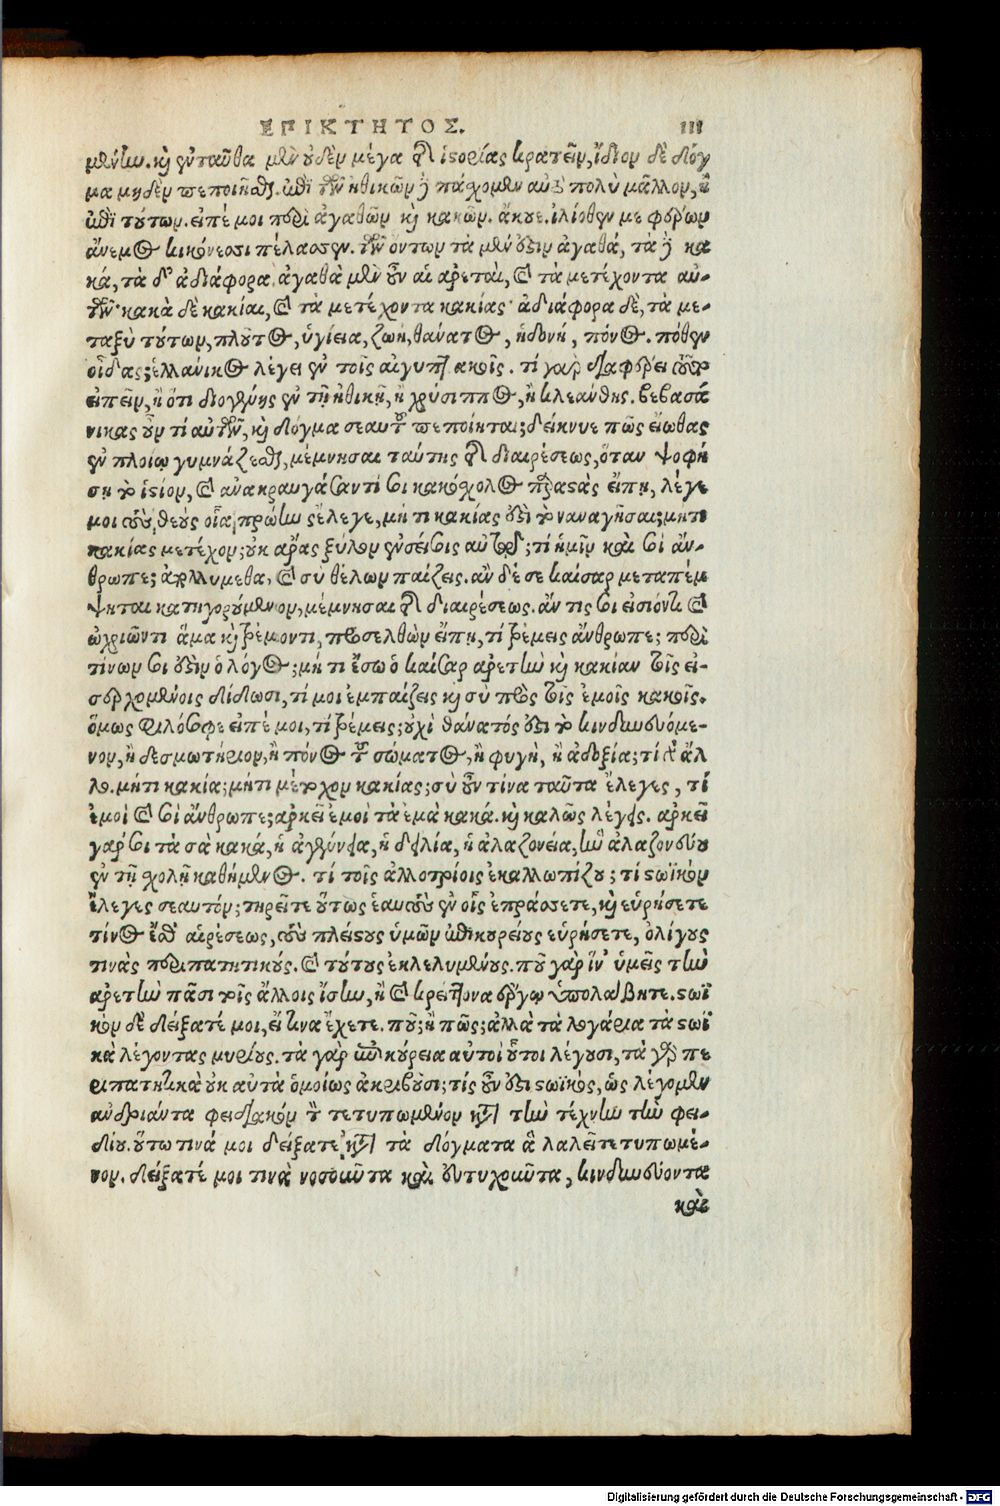 ΕΠΙΚΤΗΤΟΣ. 111
μένην. καὶ ἐνταῦθα μὲν οὐδὲν μέγα τῆς ἱστορίας κρατεῖν, ἴδιον δὲ δόγ
μα μηδὲν πεποιῆσθαι. ἐπὶ τῶν ἠθικῶν δὲ πάσχομεν αὐτὸ πολὺ μᾶλλον, ἢ
ἐπὶ τούτων. εἰπέ μοι περὶ ἀγαθῶν καὶ κακῶν. ἄκουε. ἰλιόθεν με φέρων
ἄνεμος κικόνεσσι πέλασσεν. τῶν ὄντων τὰ μέν ἐστιν ἀγαθά, τὰ δὲ κα
κά, τὰ δ' ἀδιάφορα. ἀγαθὰ μὲν οὖν αἱ ἀρεταὶ, καὶ τὰ μετέχοντα αὐ-
τῶν· κακὰ δὲ κακίαι, καὶ τὰ μετέχοντα κακίας· ἀδιάφορα δὲ, τὰ με-
ταξὺ τούτων, πλοῦτος, ὑγίεια, ζωὴ, θάνατος, ἡδονή, πόνος. πόθεν
οἶδας; ἑλλάνικος λέγει ἐν τοῖς αἰγυπτιακοῖς. τί γὰρ διαφέρει τοῦτο
εἰπεῖν, ἢ ὅτι διογένης ἐν τῇ ἠθικῇ, ἢ χρύσιππος, ἢ κλεάνθης. βεβασά
νικας οὖν τί αὐτῶν, καὶ δόγμα σεαυτοῦ πεποίηται; δείκνυε πῶς εἴωθας
ἐν πλοίῳ γυμνάζεσθαι, μέμνησαι ταύτης τῆς διαιρέσεως, ὅταν ψοφή
σῃ τὸ ἱστίον, καὶ ἀνακραυγάσαντί σοι κακόσχολος παραστὰς εἴπῃ, λέγε
μοι τοὺς θεούς οἷα πρώην ἔλεγε, μή τι κακίας ἐστὶ τὸ ναυαγῆσαι; μήτι
κακίας μετέχον; οὐκ ἄρας ξύλον ἐνσείσεις αὐτῷ; τί ἡμῖν καὶ σοὶ ἄν-
θρωπε; ἀπολλύμεθα, καὶ σὺ θέλων παίζεις. ἂν δέ σε καίσαρ μεταπέμ
ψηται κατηγορούμενον, μέμνησαι τῆς διαιρέσεως. ἄν τις σοι εἰσιόντι καὶ
ὠχριῶντι ἅμα καὶ τρέμοντι, προσελθὼν εἴπῃ, τί τρέμεις ἄνθρωπε; περὶ
τίνων σοι ἐστὶν ὁ λόγος; μή τι ἔσω ὁ καίσαρ ἀρετὴν καὶ κακίαν τοῖς εἰ-
σερχομένοις δίδωσι, τί μοι ἐμπαίζεις καὶ σὺ πρὸς τοῖς ἐμοῖς κακοῖς.
ὅμως φιλόσοφε εἰπέ μοι, τί τρέμεις; οὐχὶ θάνατός ἐστι τὸ κινδυνευόμε-
νον, ἢ δεσμωτήριον, ἢ πόνος τοῦ σώματος, ἢ φυγὴ, ἢ ἀδοξία; τί δὲ ἄλ
λο. μήτι κακία; μήτι μέτοχον κακίας; σὺ οὖν τίνα ταῦτα ἔλεγες, τί
ἐμοὶ καὶ σοὶ ἄνθρωπε; ἀρκεῖ ἐμοὶ τὰ ἐμὰ κακά. καὶ καλῶς λέγεις. ἀρκεῖ
γάρ σοι τὰ σὰ κακά, ἡ ἀγένεια, ἡ δειλία, ἡ ἀλαζονεία, ἣν ἀλαζονεύου
ἐν τῇ σχολῇ καθήμενος. τί τοῖς ἀλλοτρίοις ἐκαλλωπίζου; τί στωϊκὸν
ἔλεγες σεαυτόν; τηρεῖτε οὕτως ἑαυτοὺς ἐν οἷς ἐπράσσετε, καὶ εὑρήσετε
τίνος ἔσθ' αἱρέσεως, τοὺς πλείστους ὑμῶν ἐπικουρείους εὑρήσετε, ὀλίγους
τινὰς περιπατητικούς. καὶ τούτους ἐκλελυμένους. ποῦ γὰρ ἵν' ὑμεῖς τὴν
ἀρετὴν πᾶσι τοῖς ἄλλοις ἴσην, ἢ καὶ κρείττονα ἔργῳ ὑπολάβητε. στωϊ
κὸν δὲ δείξατέ μοι, εἴ τινα ἔχετε. ποῦ; ἢ πῶς; ἀλλὰ τὰ λογάρια τὰ στωϊ
κὰ λέγοντας μυρίους. τὰ γὰρ ἐπικούρεια αὐτοὶ οὗτοι λέγουσι, τὰ γὰρ πε
ριπατητικὰ οὐκ αὐτὰ ὁμοίως ἀκριβοῦσι; τίς οὖν ἐστι στωϊκός, ὡς λέγομεν
ἀνδριάντα φειδιακὸν τὸν τετυπωμένον κατὰ τὴν τέχνην τὴν φει-
δίου. οὕτω τινά μοι δείξατε κατὰ τὰ δόγματα ἃ λαλεῖ τετυπωμέ-
νον. δείξατέ μοι τινὰ νοσοῦντα καὶ εὐτυχοῦντα, κινδυνεύοντα
καὶ
Digitalisierung gefördert durch die Deutsche Forschungsgemeinschaft - DFG